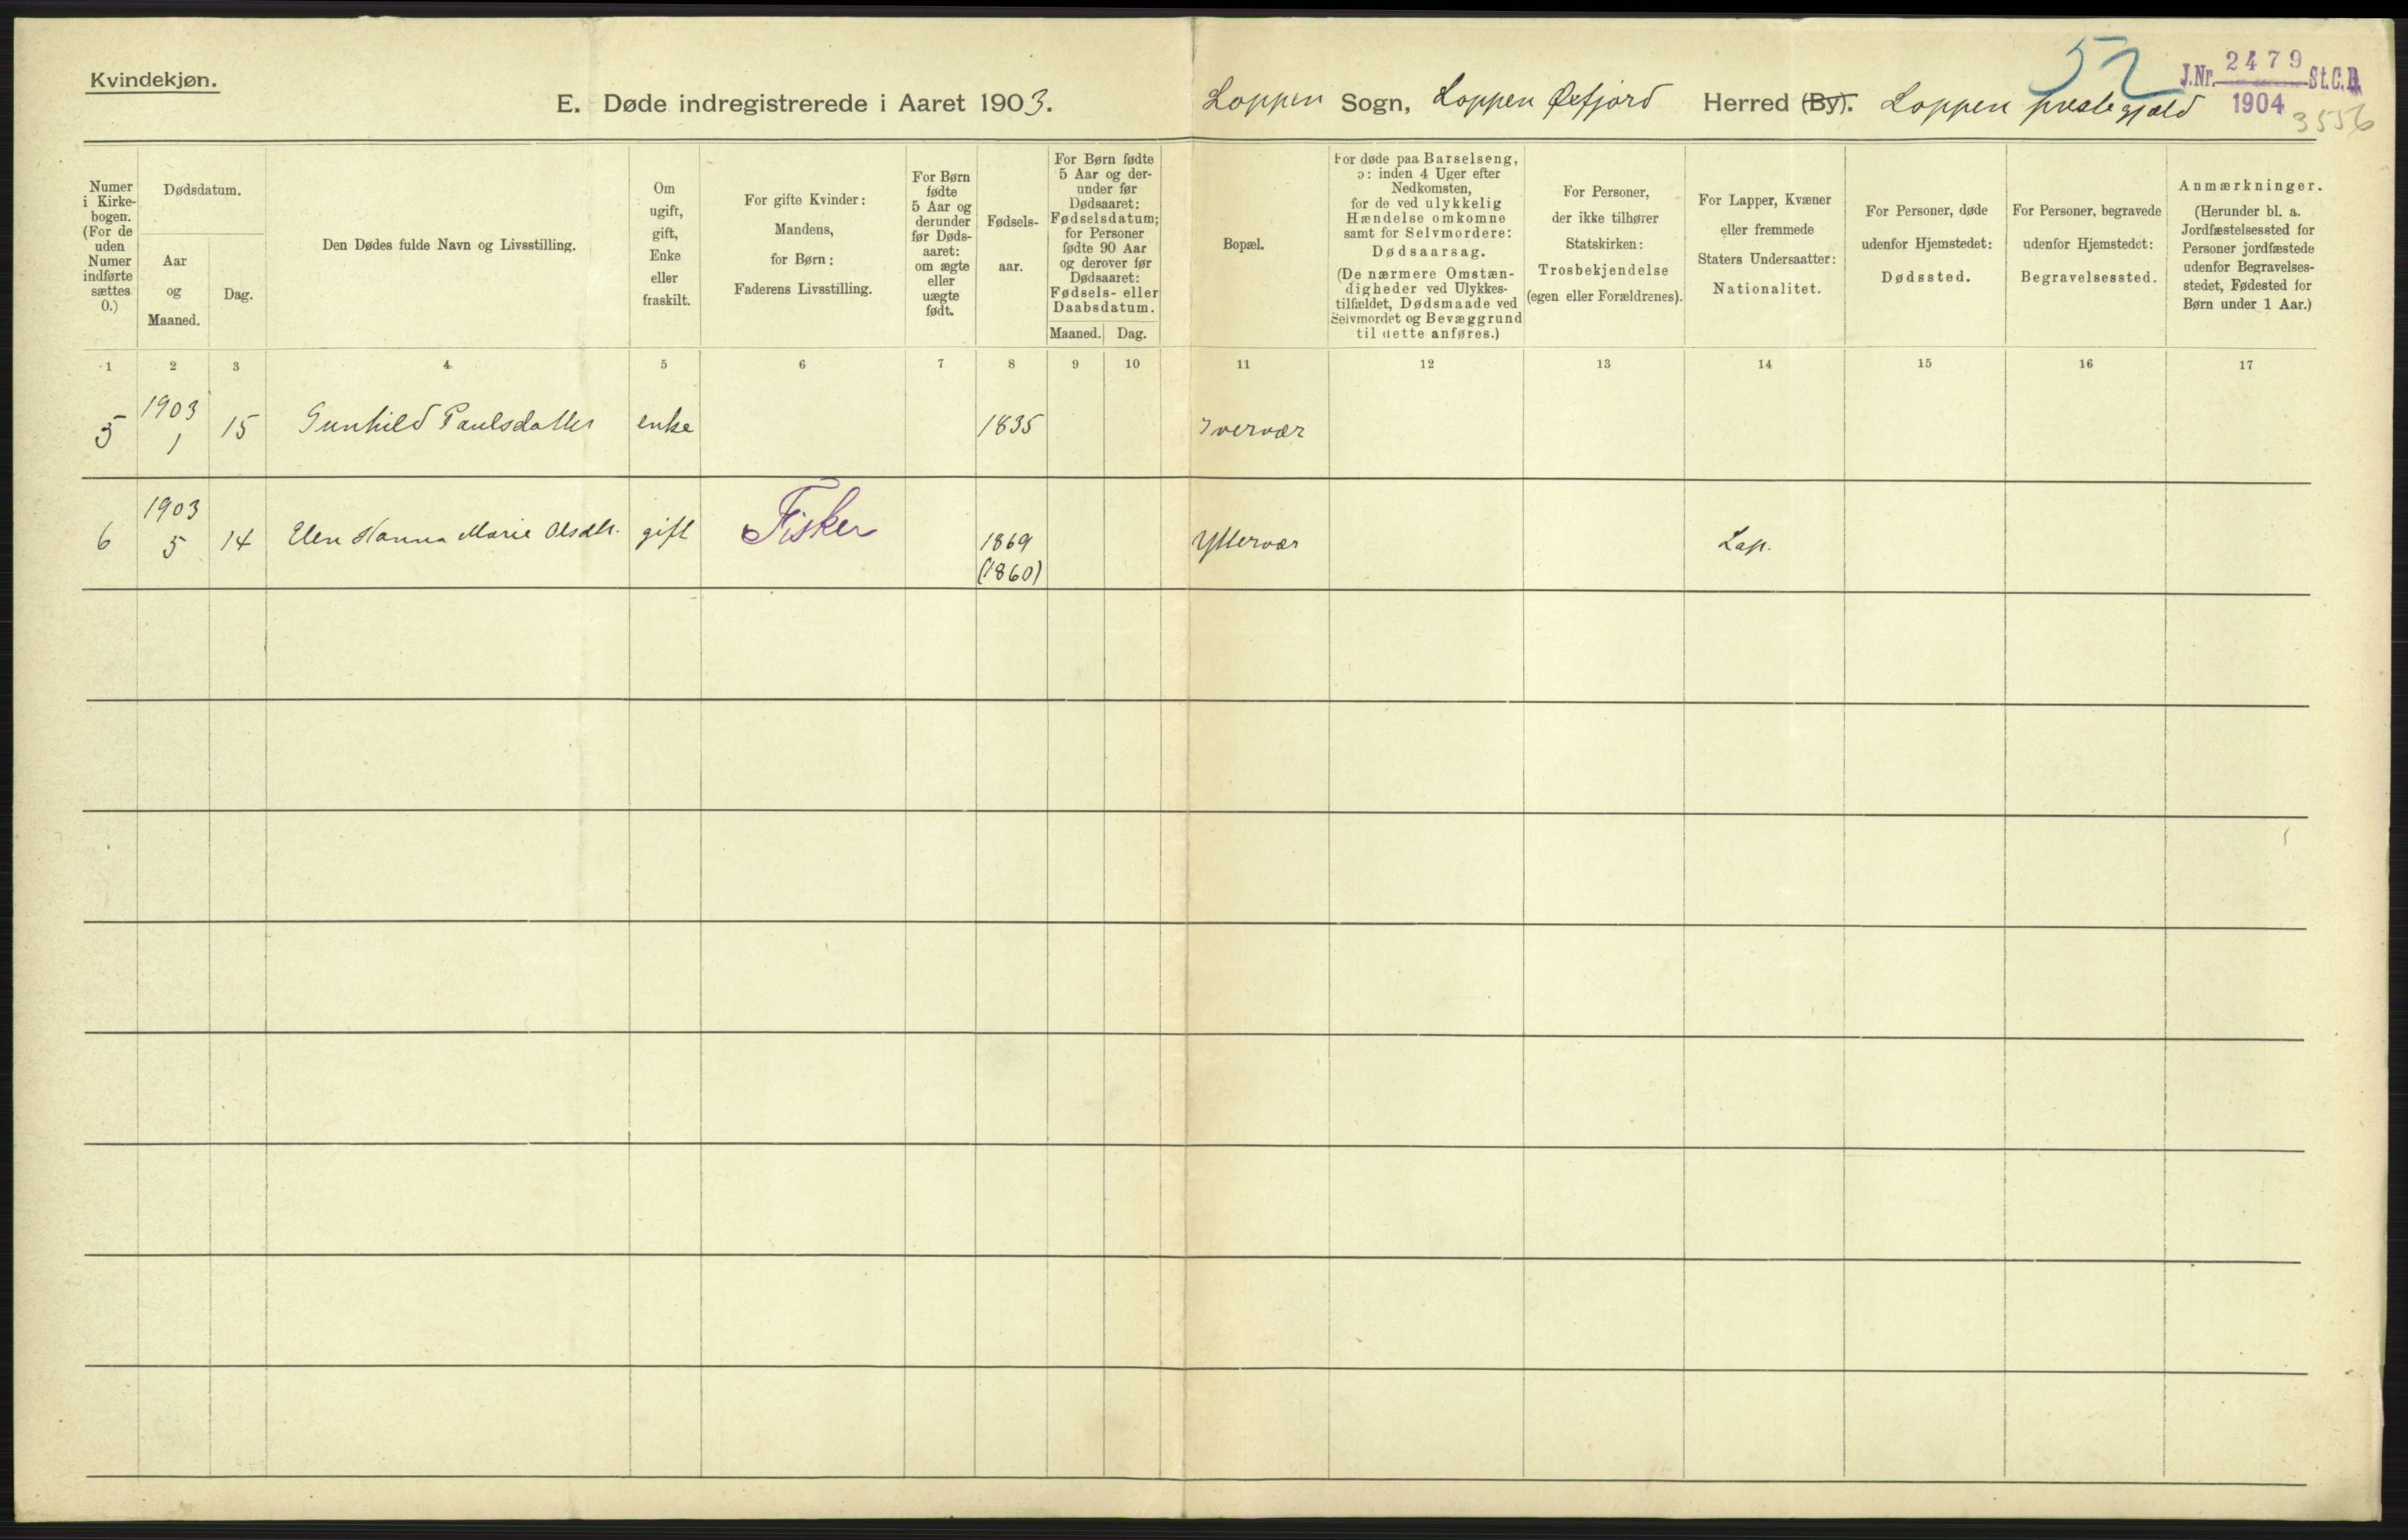 Kvindekjøn.
52
J.Nr. 2479 St.C.B.
1904
3556
E. Døde indregistrerede i Aaret 1903. Loppen Sogn, Loppen Øxfjord Herred (By). Loppen prestegjæld
Numer
i Kirke-
bogen.
(For de
uden
Numer
indførte
sættes
0.)
Dødsdatum.
Aar
og
Maaned.
Dag.
Den Dødes fulde Navn og Livsstilling.
Om
ugift,
gift,
Enke
eller
fraskilt.
For gifte Kvinder:
Mandens,
for Børn:
Faderens Livsstilling.
For Børn
fødte
5 Aar og
derunder
før Døds-
aaret:
om ægte
eller
uægte
født.
Fødsels-
aar.
For Børn fødte
5 Aar og der-
under før
Dødsaaret:
Fødselsdatum;
for Personer
fødte 90 Aar
og derover før
Dødsaaret:
Fødsels- eller
Daabsdatum.
Maaned. Dag.
Bopæl.
For døde paa Barselseng,
ɔ: inden 4 Uger efter
Nedkomsten,
for de ved ulykkelig
Hændelse omkomne
samt for Selvmordere:
Dødsaarsag.
(De nærmere Omstæn-
digheder ved Ulykkes-
tilfældet, Dødsmaade ved
Selvmordet og Bevæggrund
til dette anføres.)
For Personer,
der ikke tilhører
Statskirken:
Trosbekjendelse
(egen eller Forældrenes).
For Lapper, Kvæner
eller fremmede
Staters Undersaatter:
Nationalitet.
For Personer, døde
udenfor Hjemstedet:
Dødssted.
For Personer, begravede
udenfor Hjemstedet:
Begravelsessted.
Anmærkninger.
(Herunder bl. a.
Jordfæstelsessted for
Personer jordfæstede
udenfor Begravelses-
stedet, Fødested for
Børn under 1 Aar.)
1 2 3 4 5 6 7 8 9 10 11 12 13 14 15 16 17
1903
5 1 15 Gunhild Paulsdatter enke 1835 Ivervær
1903
6 5 14 Elen Hanna Marie Olsdtr. gift Fisker 1869 Yttervær Lap.
(1860)